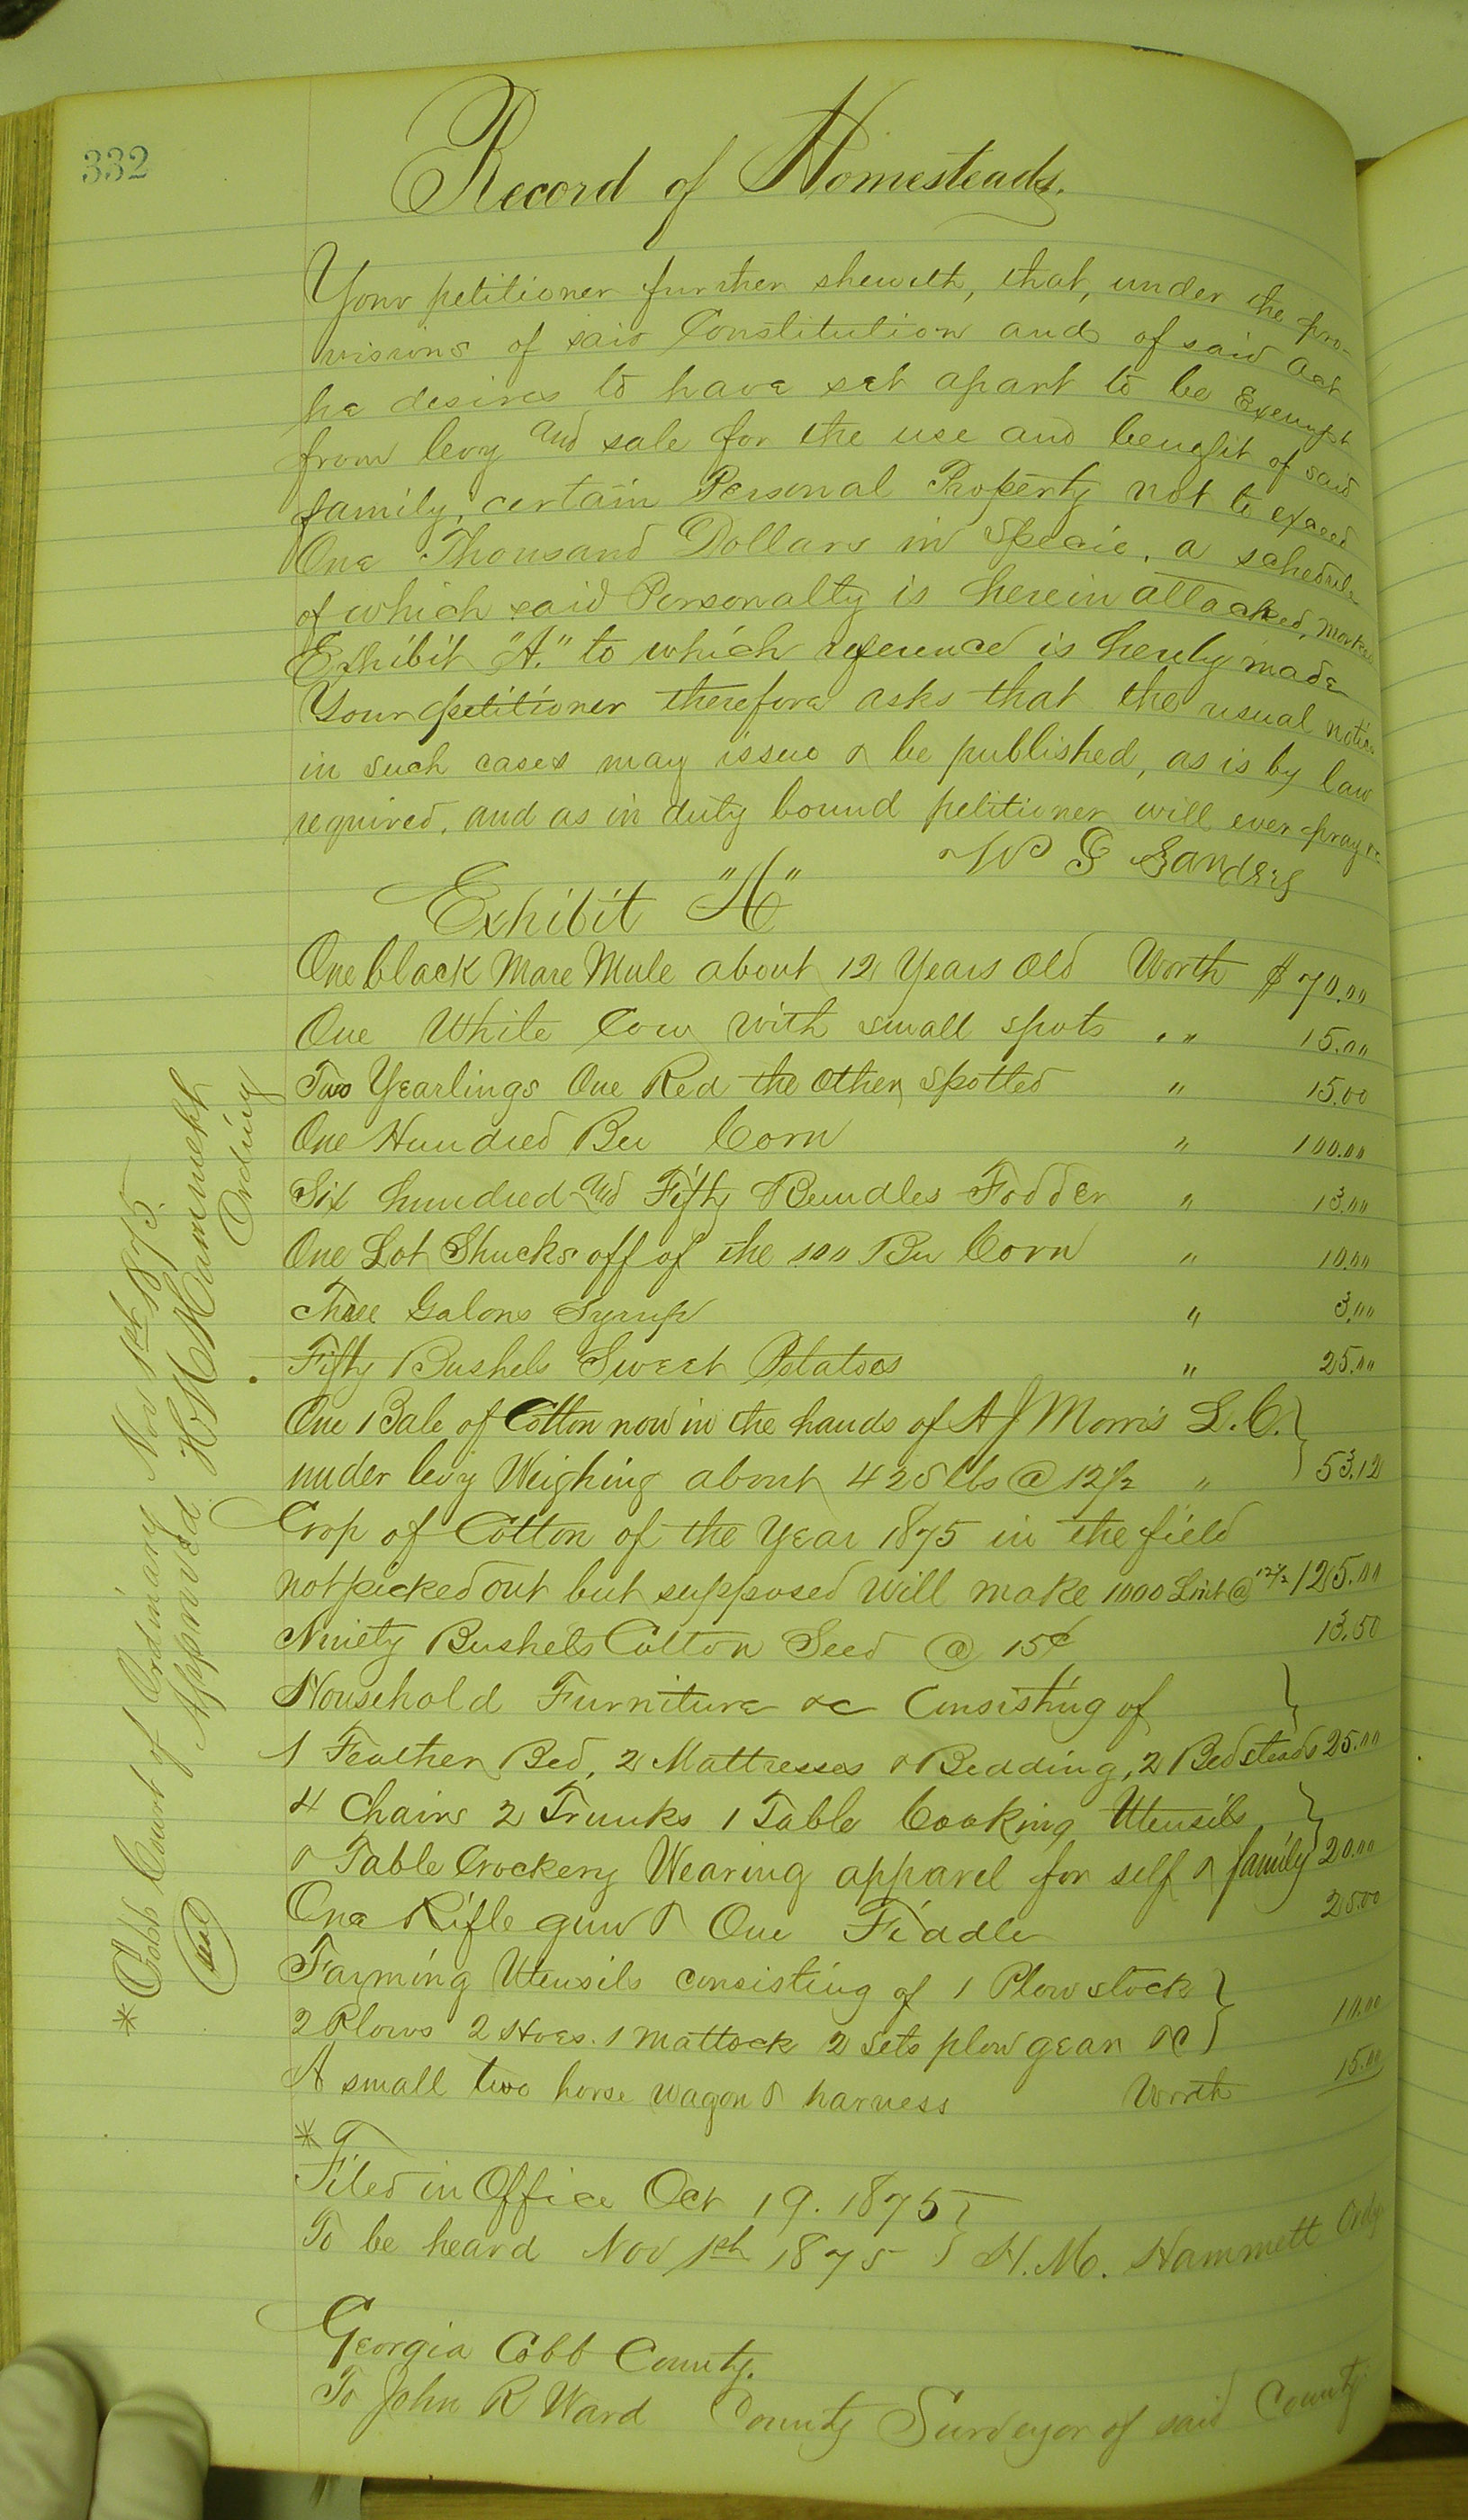 332
Record of Homesteads.
Your petitioner further sheweth, that, under the pro-
visions of said Constitution and of said Act
he desires to have set apart to be Exempt
from levy and sale for the use and benefit of said
family, certain Personal Property not to exceed
One Thousand Dollars in Specie, a schedule
of which said Personalty is herein attached, marked
Exhibit "A." to which reference is hereby made
Your petitioner therefore asks that the usual notice
in such cases may issue & be published, as is by law
required, and as in duty bound petitioner will ever pray &c
W G Sanders
Exhibit "A"
One black Mare Mule about 12 Years Old Worth $70.00
One White Cow with small spots " " 15.00
Two Yearlings One Red the Other Spotted " 15.00
One Hundred Bu Corn " 100.00
Six hundred and Fifty Bundles Fodder " 13.00
One Lot Shucks off of the 100 Bu Corn " 10.00
Three Galons Syrup " 3.00
Fifty Bushels Sweet Potatoes " 25.00
One Bale of Cotton now in the hands of A J Morris L.C.
under levy Weighing about 425 lbs @ 12½ " 53.12
Crop of Cotton of the Year 1875 in the field
not picked out but supposed will make 1000 Lint @ 12½ 125.00
Ninety Bushels Cotton Seed @ 15¢ 13.50
Household Furniture &c Consisting of
1 Feather Bed, 2 Mattresses & Bedding, 2 Bedsteads 25.00
4 Chairs 2 Trunks 1 Table Cooking Utensils
& Table Crockery Wearing apparel for self & family 20.00
One Rifle gun & One Fiddle 25.00
Farming Utensils consisting of 1 Plow stock
2 Plows 2 Hoes. 1 Mattock 2 sets plow gear &c 10.00
A small two horse wagon & harness Worth 15.00
*
Filed in Office Oct 19. 1875
To be heard Nov 1st 1875 H. M. Hammett Ordy
Georgia Cobb County.
To John R Ward County Surveyor of said County
* Cobb Court of Ordinary Nov 1st 1875.
Approved H M Hammett
Ordinary
Seal